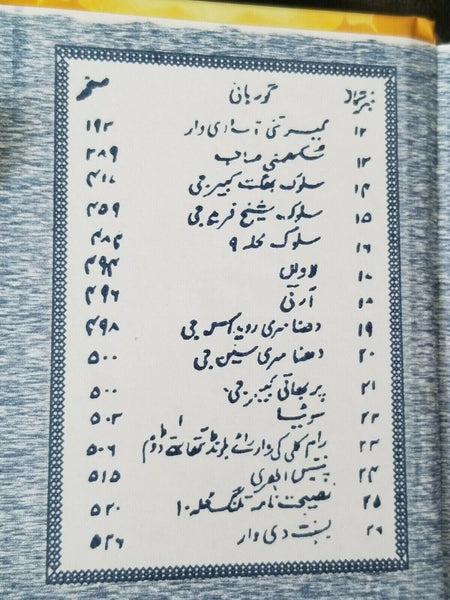 نمبر شمار گوربانی صفحہ
۱۲ آسا دی وار ۱۹۳
۱۳ سکھمنی صاحب ۲۸۹
۱۴ سلوک بھگت کبیر جی ۴۱۷
۱۵ سلوک شیخ فرید جی ۴۵۹
۱۶ سلوک محلہ ۹ ۴۸۴
۱۷ لاواں ۴۹۴
۱۸ آرتی ۴۹۶
۱۹ دھنا سری جی ۴۹۸
۲۰ دھنا سری سینن جی ۵۰۰
۲۱ پربھاتی کبیر جی ۵۰۰
۲۲ ۵۰۲
۲۳ رام کلی کی وار رائے بلونڈ تتھا ستے ڈوم ۵۰۶
۲۴ ۵۱۵
۲۵ نصیحت نامہ محلہ ۱۰ ۵۲۰
۲۶ بسنت دی وار ۵۲۶